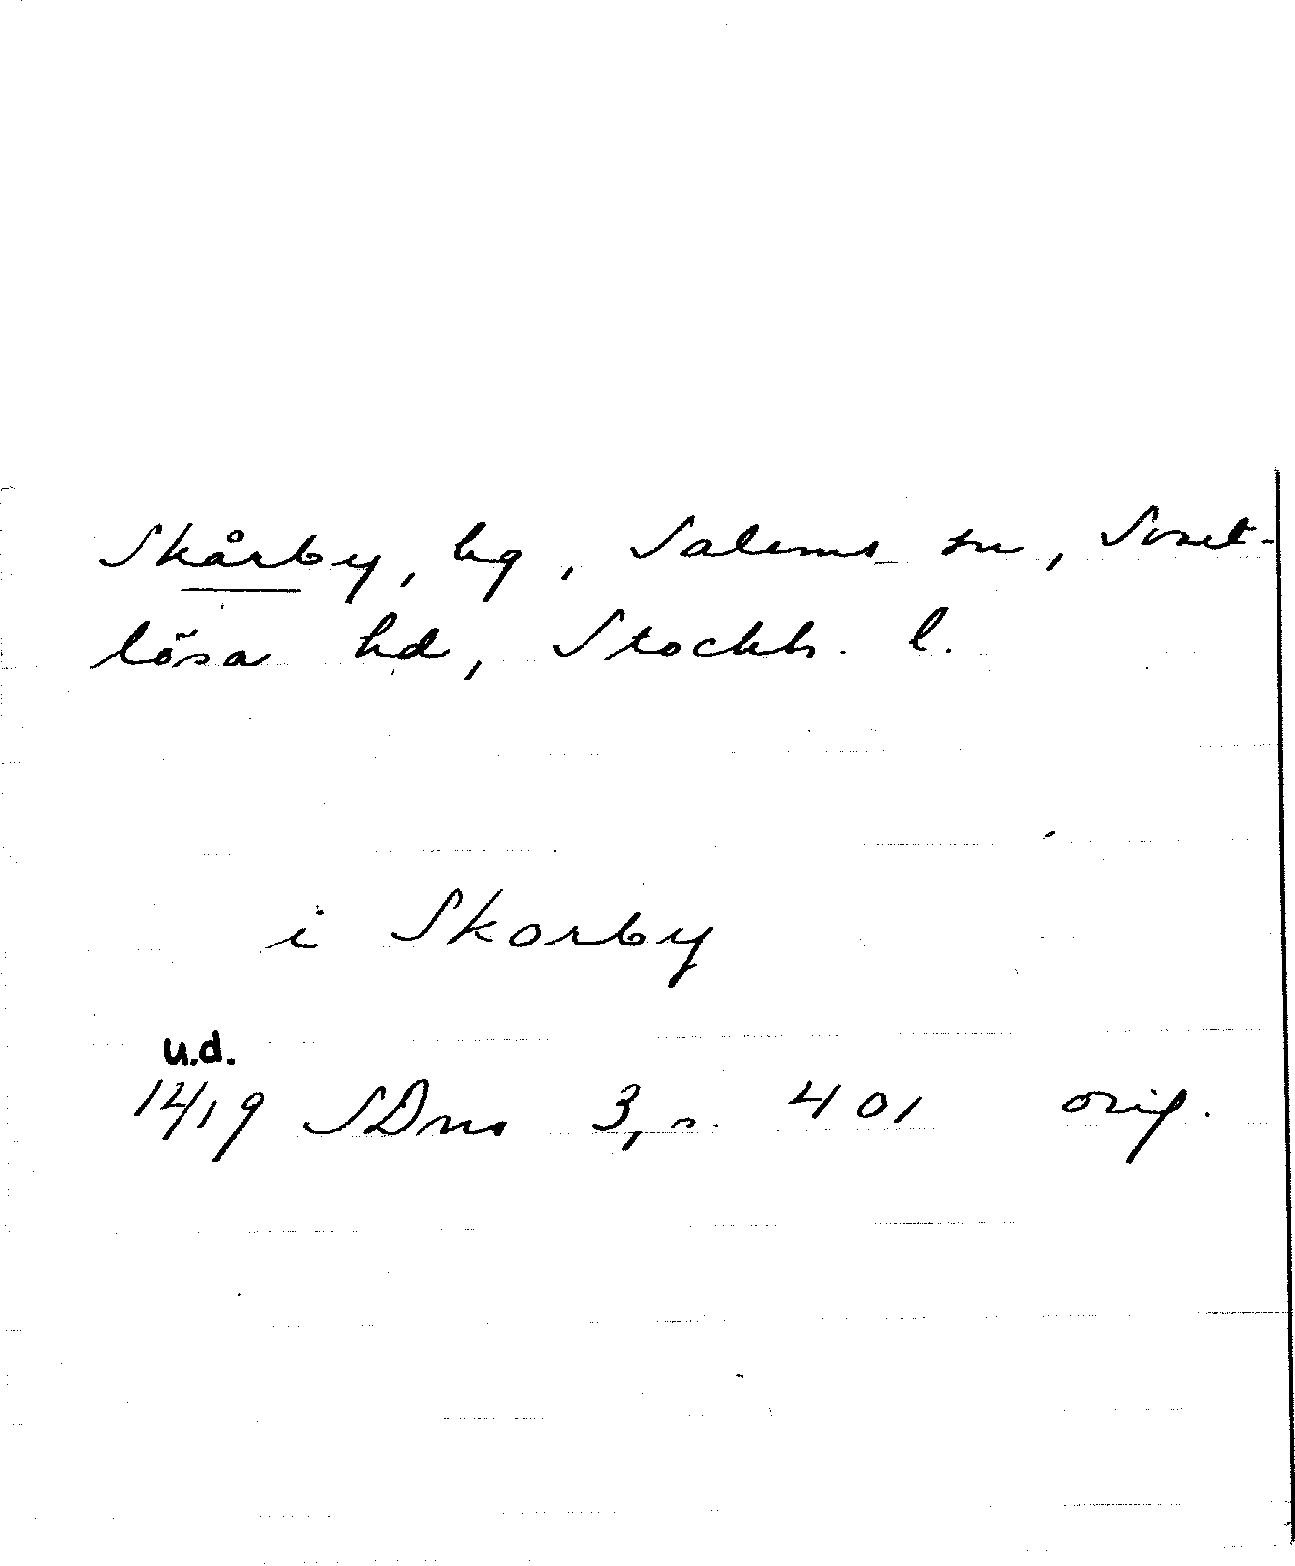 Skårby, by, Salems sn, Svart-
lösa hd, Stockh. l.
i Skorby
u.d.
1419 SDns 3, s. 401 orig.